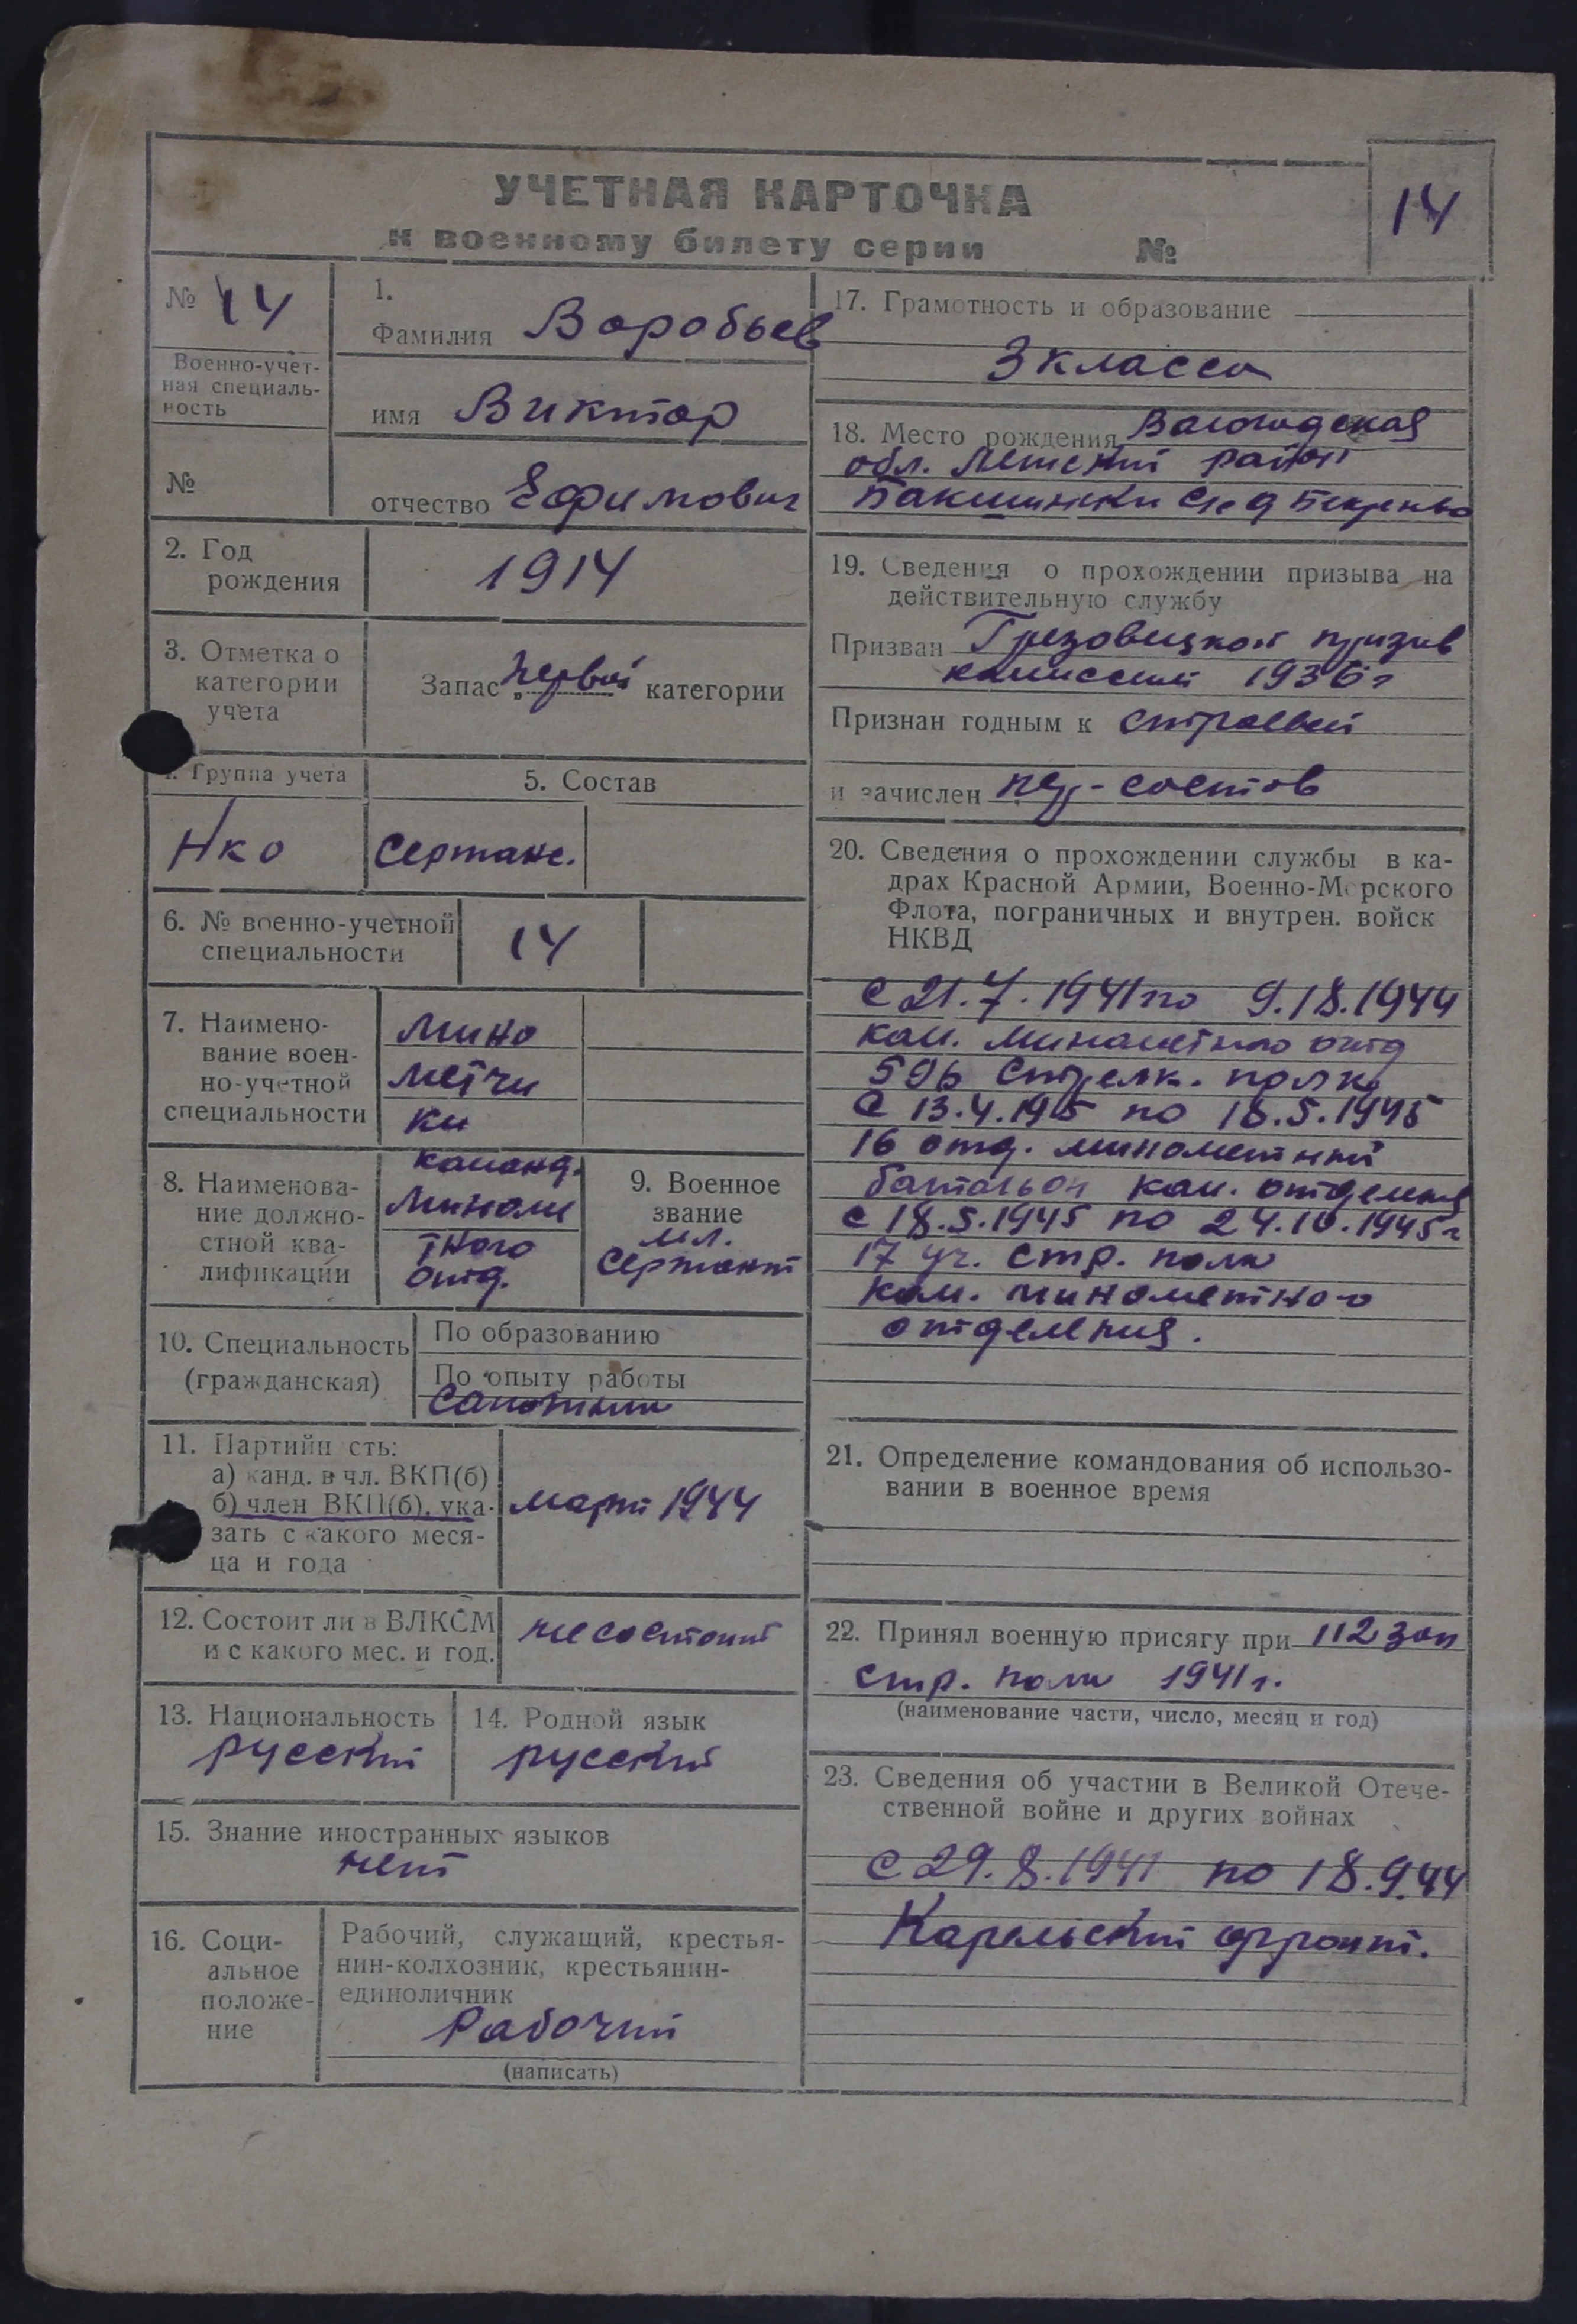 УЧЕТНАЯ КАРТОЧКА
к военному билету серии №
14
№ 14
Военно-учет-
ная специаль-
ность
№
1.
Фамилия Воробьев
имя Виктор
отчество Ефимович
2. Год
рождения
1914
3. Отметка о
категории
учета
Запас первой категории
4. Группа учета
Нко
5. Состав
Сержанс.
6. № военно-учетной
специальности
14
7. Наимено-
вание воен-
но-учетной
специальности
мино
метчи
ки
8. Наименова-
ние должно-
стной ква-
лификации
команд.
миноме
тного
отд.
9. Военное
звание
мл.
Сержант
10. Специальность
(гражданская)
По образованию
По опыту работы
сапожник
11. Партийн сть:
а) канд. в чл. ВКП(б)
б) член ВКП(б), ука-
зать с какого меся-
ца и года
март 1944
12. Состоит ли в ВЛКСМ
и с какого мес. и год.
не состоит
13. Национальность
русский
14. Родной язык
русский
15. Знание иностранных языков
нет
16. Соци-
альное
положе-
ние
Рабочий, служащий, крестья-
нин-колхозник, крестьянин-
единоличник
Рабочий
(написать)
17. Грамотность и образование
3 класса
18. Место рождения Вологодская
обл. район
19. Сведения о прохождении призыва на
действительную службу
Призван Грязовецкой призыв
комиссией 1936 г
Признан годным к строевой
и зачислен
20. Сведения о прохождении службы в ка-
драх Красной Армии, Военно-Морского
Флота, пограничных и внутрен. войск
НКВД
с 21.7.1941 по 9.18.1944
ком. минометного отд
596 стрелк. полк
с 13.4.195 по 18.5.1945
16 отд. минометный
батальон ком. отделения
с 18.5.1945 по 24.10.1945 г
17 уч. стр. полк
ком. минометного
отделения.
21. Определение командования об использо-
вании в военное время
22. Принял военную присягу при 112 зап
стр. полк 1941 г.
(наименование части, число, месяц и год)
23. Сведения об участии в Великой Отече-
ственной войне и других войнах
с 29.8.1941 по 18.9.44
Карельский фронт.